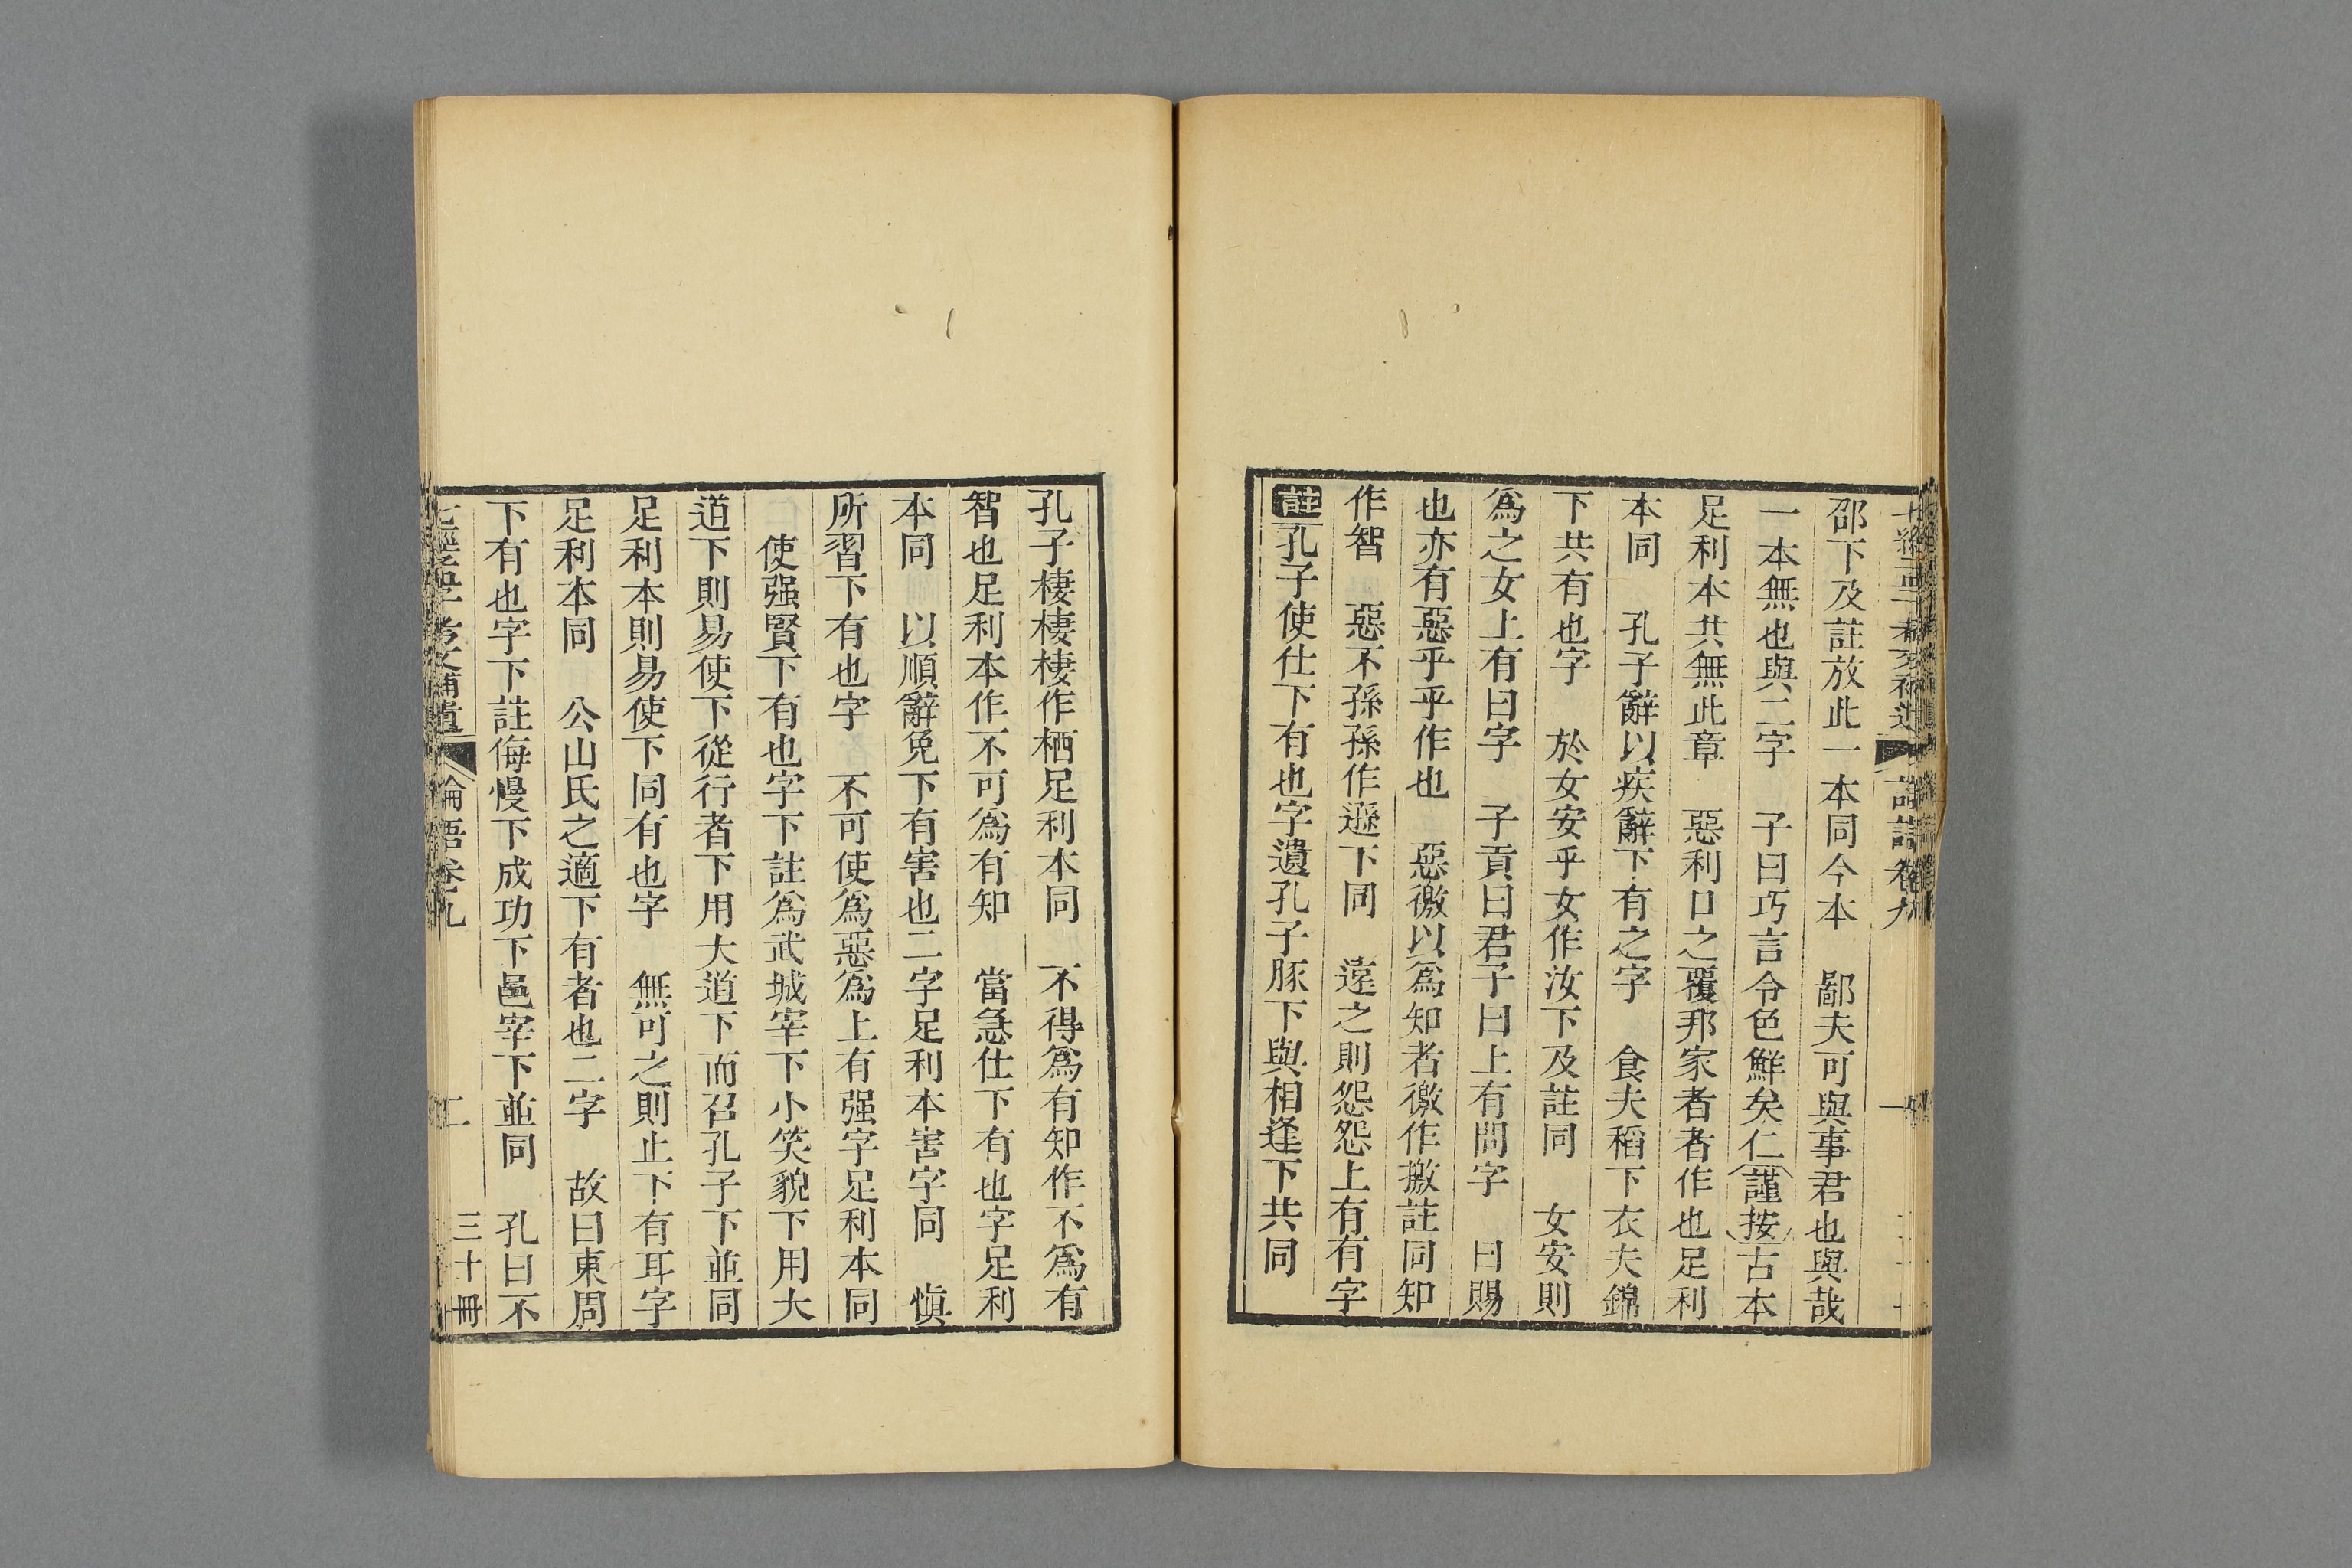 邵下及註放此一本同今本　鄙夫可與事君也與哉
一本無也與二字　子曰巧言令色鮮矣仁謹按古本
足利本共無此章　惡利口之覆邦家者者作也足利
本同　孔子辭以疾辭下有之字　食夫稻下衣夫錦
下共有也字　於女安乎女作汝下及註同　女安則
爲之女上有曰字　子貢曰君子曰上有問字　曰賜
也亦有惡乎乎作也　惡徼以爲知者徼作撽註同知
作智　惡不孫孫作遜下同　遠之則怨怨上有有字
註孔子使仕下有也字遺孔子豚下與相逢下共同
孔子棲棲棲作栖足利本同　不得爲有知作不爲有
智也足利本作不可爲有知　當急仕下有也字足利
本同　以順辭免下有害也二字足利本害字同　愼
所習下有也字　不可使爲惡爲上有强字足利本同
使强賢下有也字下註爲武城宰下小笑貌下用大
道下則易使下從行者下用大道下而召孔子下並同
足利本則易使下同有也字　無可之則止下有耳字
足利本同　公山氏之適下有者也二字　故曰東周
下有也字下註侮慢下成功下邑宰下並同　孔曰不
七經孟子考文補遺　論語卷九　三十冊